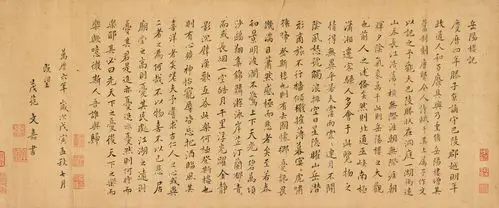 岳陽樓記
慶曆四年滕子京謫守巴陵郡越明年
政通人和百廢具興乃重修岳陽樓增其
舊制刻唐賢今人詩賦於其上屬予作文
以記之予觀夫巴陵勝狀在洞庭一湖銜遠
山吞長江浩浩湯湯橫無際涯朝
暉夕陰氣象萬千此則岳陽樓之大觀
也前人之述備矣然則北通巫峽南極
瀟湘遷客騷人多會于此覽物之
情得無異乎若夫霪雨霏霏連月不開
陰風怒號濁浪排空日星隱耀山岳潛
形商旅不行檣傾楫摧薄暮冥冥虎嘯
猿啼登斯樓也則有去國懷鄉憂讒畏
譏滿目蕭然感極而悲者矣至若春
和景明波瀾不驚上下天光一碧萬頃
沙鷗翔集錦鱗游泳岸芷汀蘭郁郁青
青而或長煙一空皓月千里浮光耀金靜
影沉璧漁歌互答此樂何極登斯樓也
則有心曠神怡寵辱皆忘把酒臨風其
喜洋洋者矣嗟夫予嘗求古仁人之心或異
二者之為何哉不以物喜不以己悲居
廟堂之高則憂其民處江湖之遠則
憂其君是進亦憂退亦憂然則何時而
樂耶其必曰先天下之憂而憂後天下之樂而
樂與噫微斯人吾誰與歸
萬曆六年歲次戊寅孟秋七月
既望
茂苑文嘉書